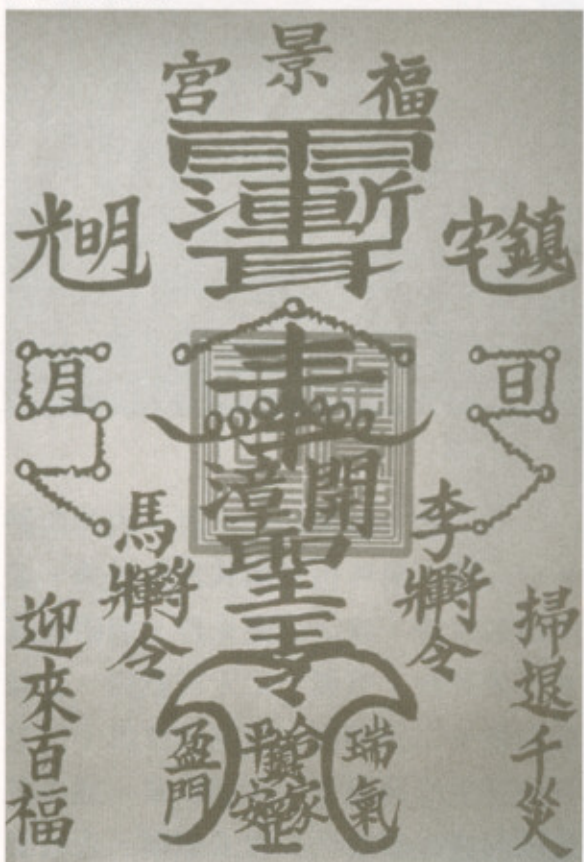 福景宮
鎮宅
光明
日
月
奉
開漳聖王令
李將軍令
馬將軍令
掃退千災
迎來百福
瑞氣
合家
平安
盈門